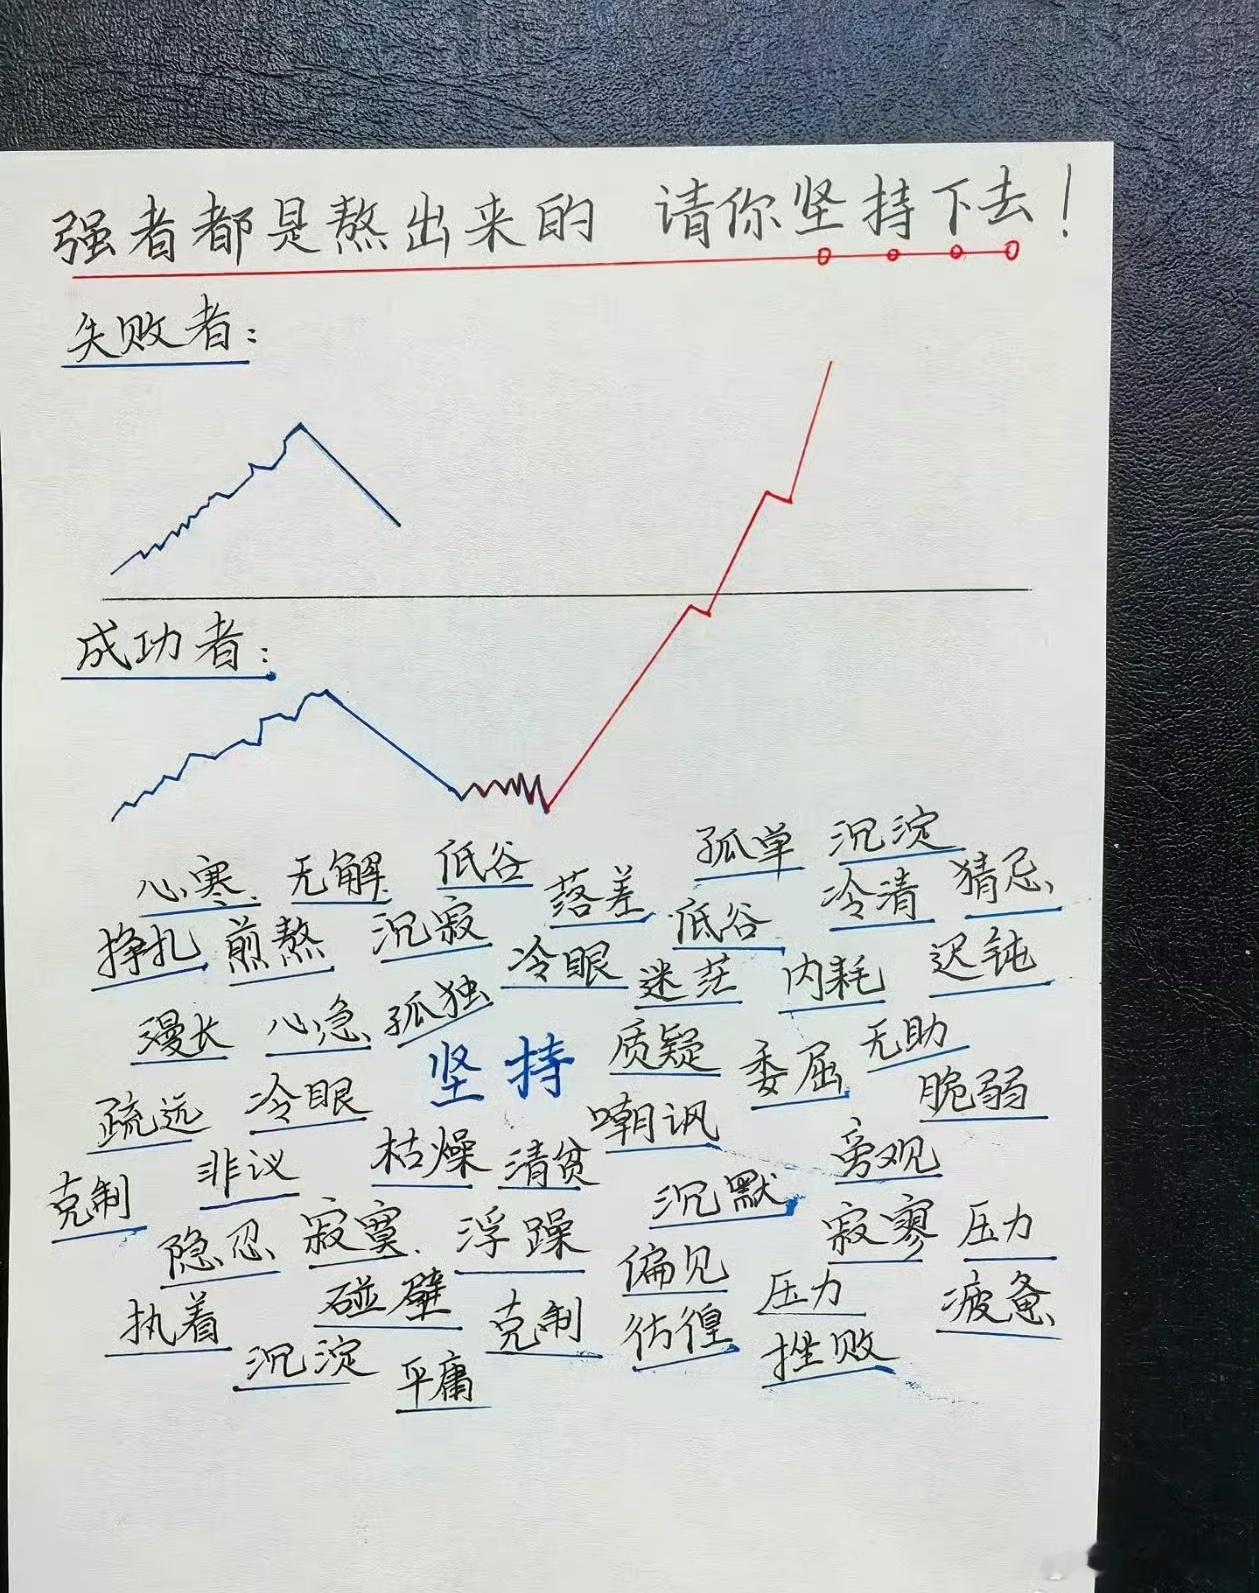 强者都是熬出来的 请你坚持下去！
失败者：
成功者：
孤单 沉淀
心寒 无解 低谷 落差 低谷 冷清 猜忌
挣扎 煎熬 沉寂 冷眼 迷茫 内耗 迟钝
漫长 心急 孤独 坚持 质疑 委屈 无助
疏远 冷眼 嘲讽 脆弱
克制 非议 枯燥 清贫 沉默 旁观
隐忍 寂寞 浮躁 偏见 寂寥 压力
执着 碰壁 克制 彷徨 压力 疲惫
沉淀 平庸 挫败